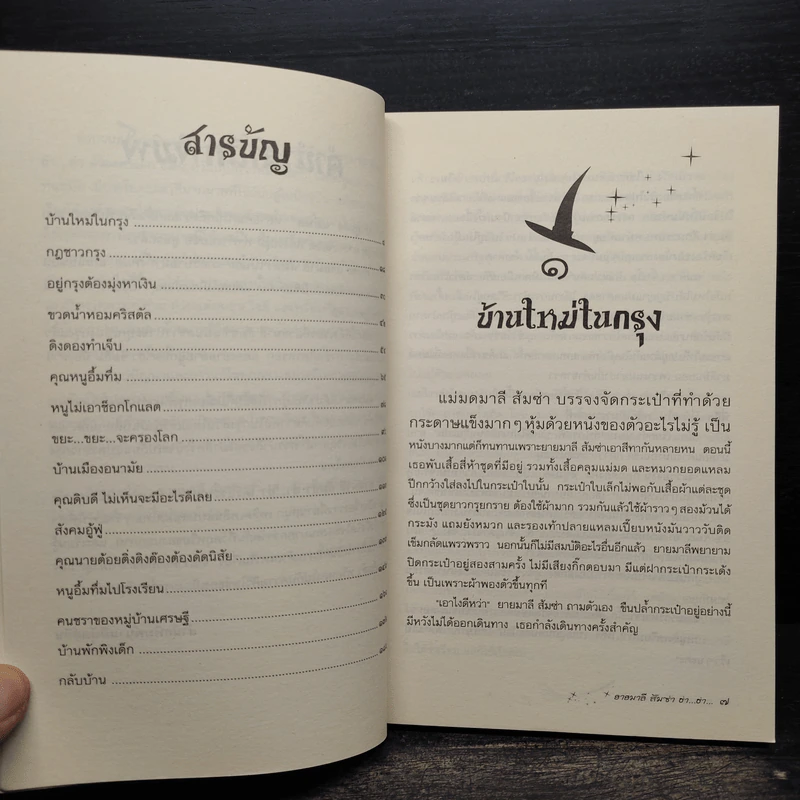 สารบัญ
บ้านใหม่ในกรุง
กฎชาวกรุง
อยู่กรุงต้องมุ่งหาเงิน
ขวดน้ำหอมคริสตัล
ดิงดองทำเจ็บ
คุณหนูอิ้มทึ่ม
หนูไม่เอาช็อกโกแลต
ขยะ...ขยะ...จะครองโลก
บ้านเมืองอนามัย
คุณดิบดี ไม่เห็นจะมีอะไรดีเลย
สังคมอู้ฟู่
คุณนายด้อยดิ่งดิงด๊องต้องดัดนิสัย
หนูอิ้มทึ่มไปโรงเรียน
คนชราของหมู่บ้านเศรษฐี
บ้านพักพิงเด็ก
กลับบ้าน
๑
บ้านใหม่ในกรุง
แม่มดมาลี ส้มซ่า บรรจงจัดกระเป๋าที่ทำด้วย
กระดาษแข็งมากๆ หุ้มด้วยหนังของตัวอะไรไม่รู้ เป็น
หนังบางมากแต่ก็ทนทานเพราะยายมาลี ส้มซ่าเอาสีทากันหลายหน ตอนนี้
เธอพับเสื้อสี่ห้าชุดที่มีอยู่ รวมทั้งเสื้อคลุมแม่มด และหมวกยอดแหลม
ปีกกว้างใส่ลงไปในกระเป๋าใบนั้น กระเป๋าใบเล็กไม่พอกับเสื้อผ้าแต่ละชุด
ซึ่งเป็นชุดยาวกรุยกราย ต้องใช้ผ้ามาก รวมกันแล้วใช้ผ้าราวๆ สองม้วนได้
กระมัง แถมยังหมวก และรองเท้าปลายแหลมเปี๊ยบหนังมันวาววับติด
เข็มกลัดแพรวพราว นอกนั้นก็ไม่มีสมบัติอะไรอื่นอีกแล้ว ยายมาลีพยายาม
ปิดกระเป๋าอยู่สองสามครั้ง ไม่มีเสียงกิ๊กตอบมา มีแต่ฝากระเป๋ากระเด้ง
ขึ้น เป็นเพราะผ้าพองตัวขึ้นทุกที
"เอาไงดีหว่า" ยายมาลี ส้มซ่า ถามตัวเอง ขืนปล้ำกระเป๋าอยู่อย่างนี้
มีหวังไม่ได้ออกเดินทาง เธอกำลังเดินทางครั้งสำคัญ
ยายมาลี ส้มซ่า ฮ่า...ฮ่า... ๗